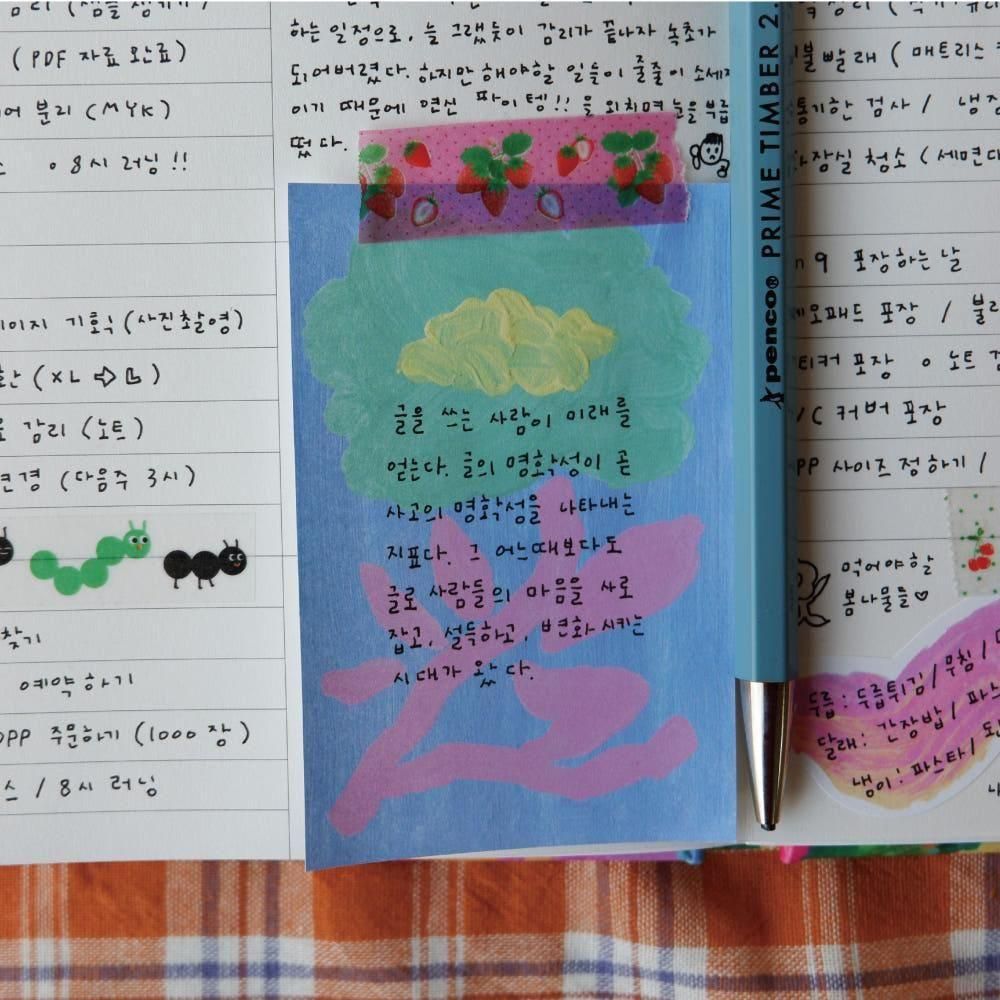 (PDF 자료 완료)
분리 (MYK)
8시 러닝!!
기획식 (사진촬영)
(XL ⇨ L)
감리 (노트)
변경 (다음주 3시)
찾기
예약하기
OPP 주문하기 (1000장)
/ 8시 러닝
하는 일정으로, 늘 그랬듯이 감리가 끝나자 녹초가
되어버렸다. 하지만 해야할 일들이 줄줄이
이기 때문에 연신 파이팅!! 을 외치며 눈을 부릅
떴다.
글을 쓰는 사람이 미래를
얻는다. 글의 명확성이 곧
사고의 명확성을 나타내는
지표다. 그 어느때보다도
글로 사람들의 마음을 사로
잡고, 설득하고, 변화시키는
시대가 왔다.
penco® PRIME TIMBER 2.
빨래 (매트리스
검사 /
화장실 청소 (세면대
9 포장하는 날
포장 /
포장 o 노트
커버 포장
OPP 사이즈 정하기 /
먹어야할
봄나물들♡
두릅 : 두릅튀김 / 무침 /
달래 : 간장밥 /
냉이 : 파스타 /